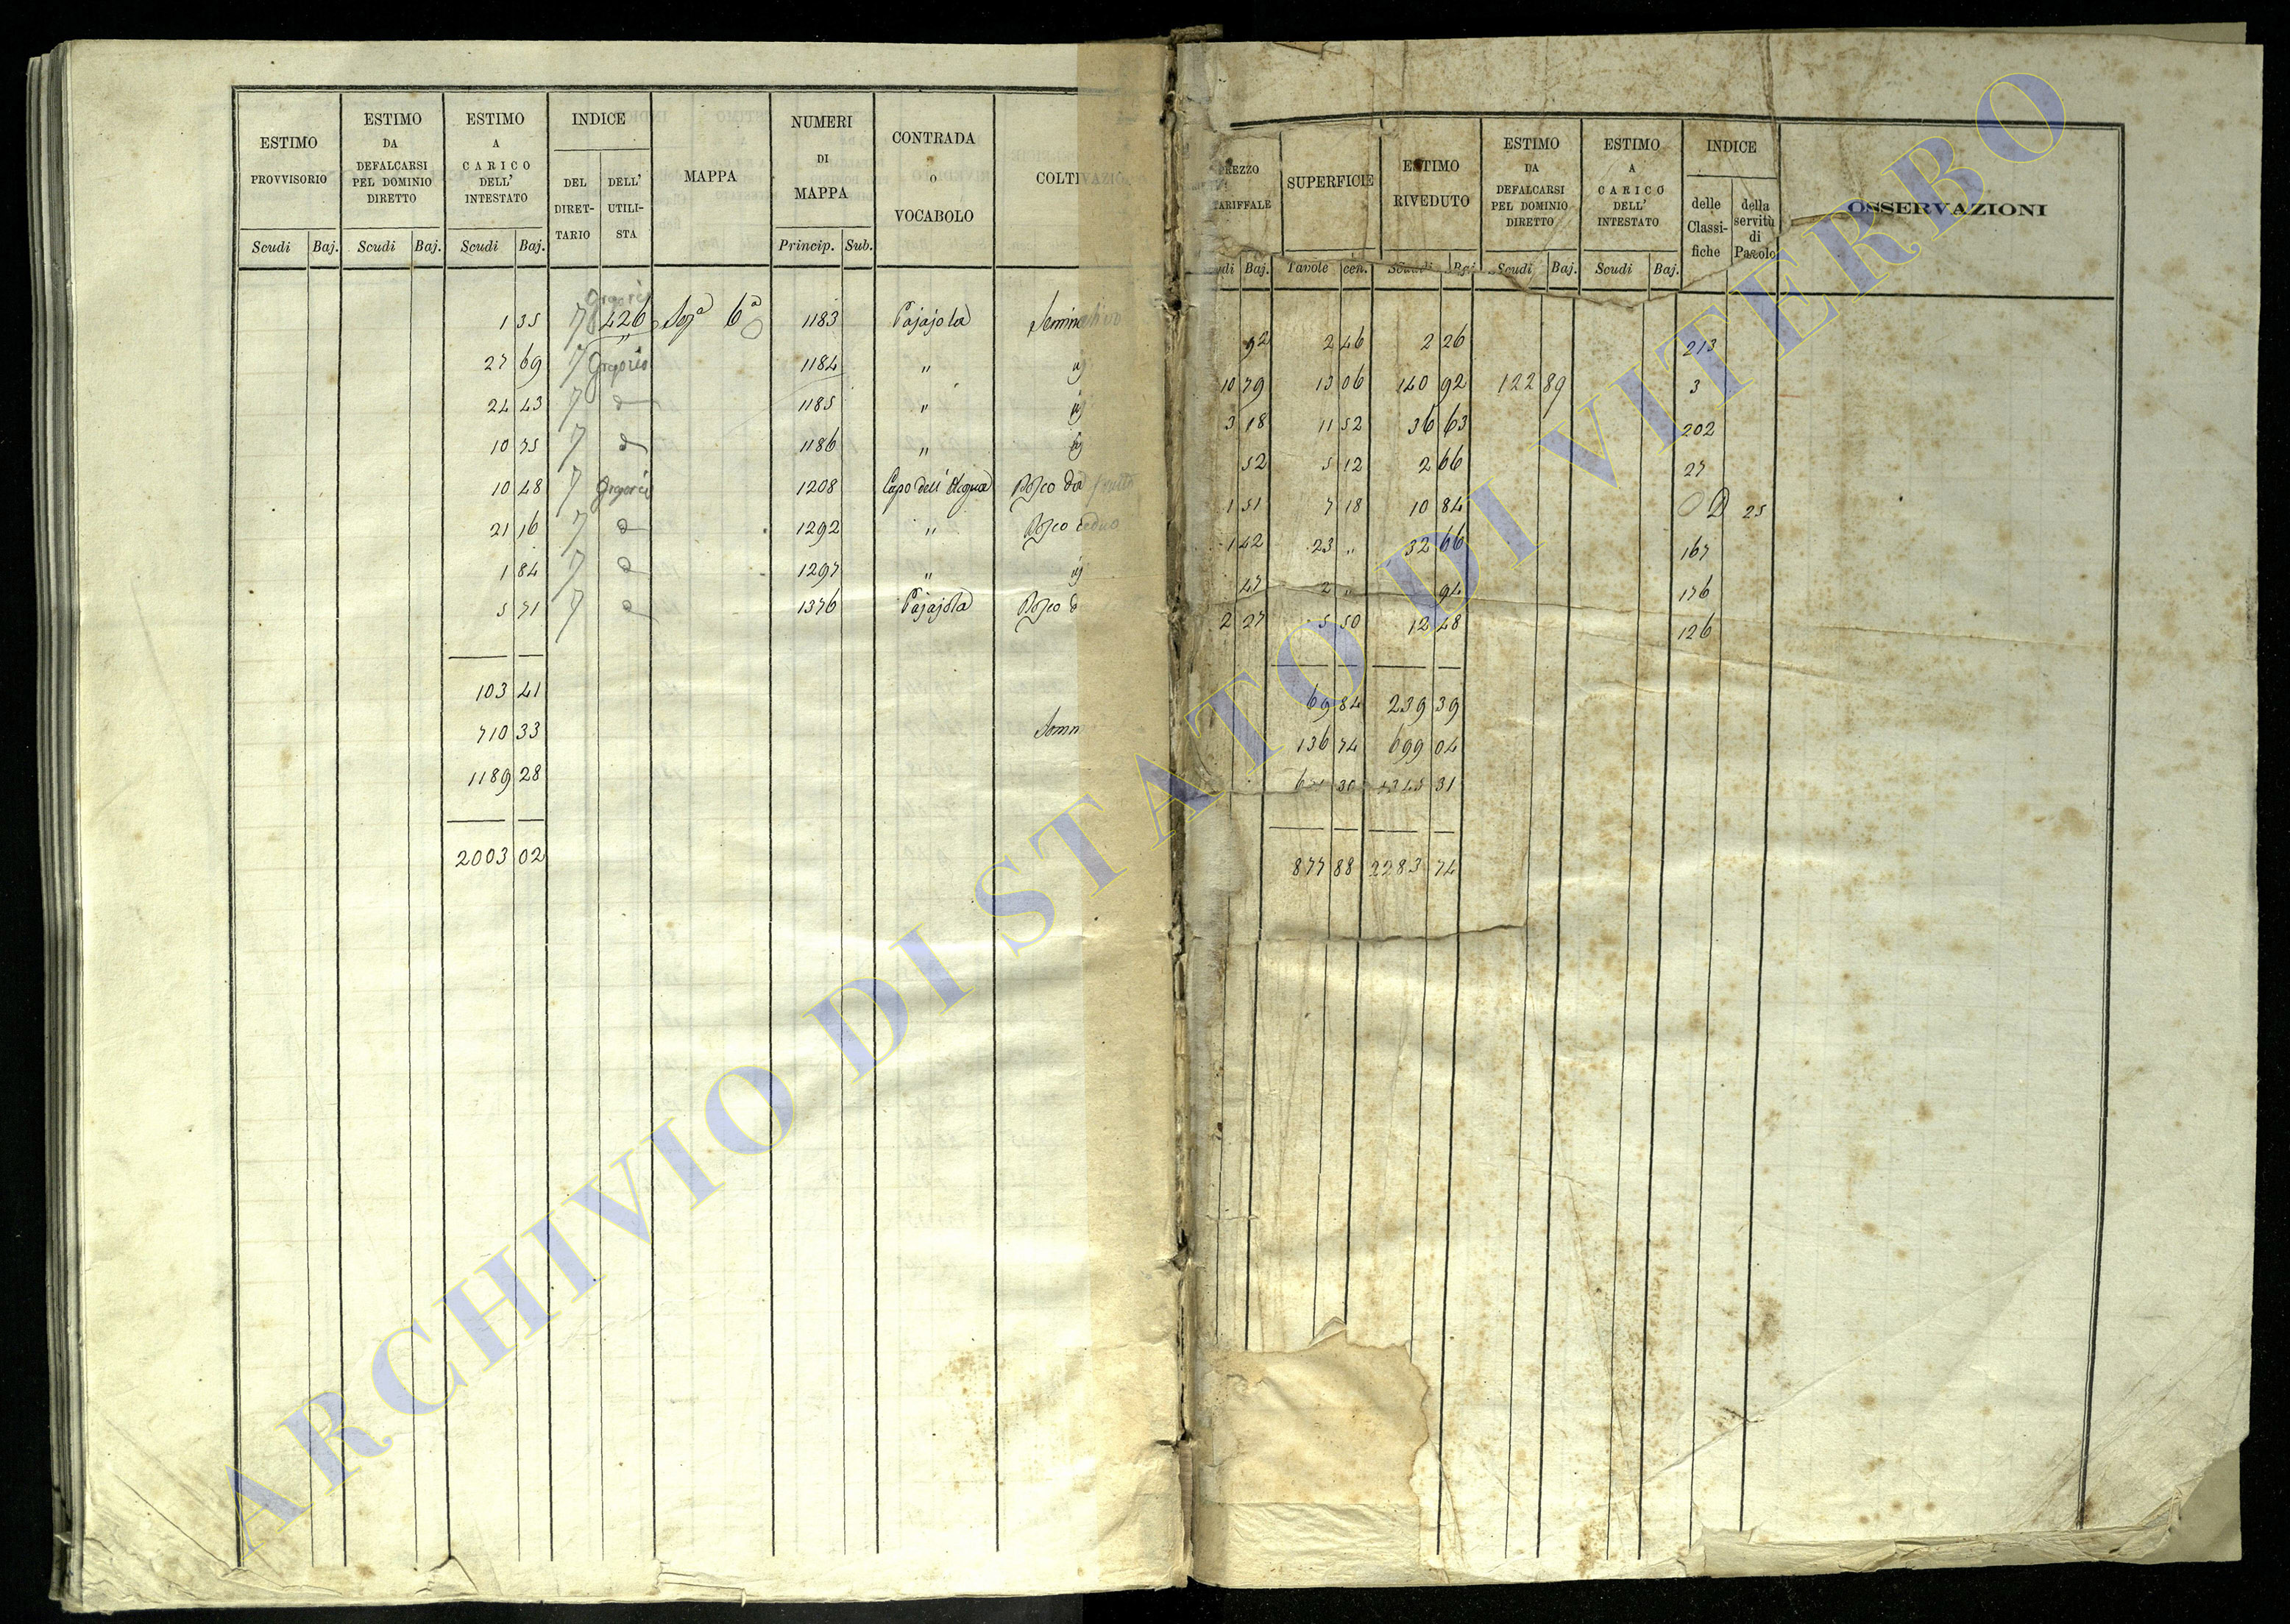 ESTIMO PROVVISORIO
Scudi Baj.
ESTIMO DA DEFALCARSI PEL DOMINIO DIRETTO
Scudi Baj.
ESTIMO A CARICO DELL' INTESTATO
Scudi Baj.
INDICE
DEL DIRET-TARIO
DELL' UTILI-STA
MAPPA
NUMERI DI MAPPA
Princip. Sub.
CONTRADA o VOCABOLO
COLTIVAZIO
1 35 7 426 6a 1183 Pajajola Seminativo
27 69 7 Gregorio 1184 " "
24 43 7 1185 " "
10 75 7 1186 " "
10 48 7 Gregorio 1208 Capo dell' Acqua Bosco da frutto
21 16 7 1292 " Bosco ceduo
1 84 7 1297 " "
5 71 7 1376 Pajajola Bosco
103 41
710 33 Somm
1189 28
2003 02
PREZZO TARIFFALE
Baj.
SUPERFICIE
Tavole cen.
ESTIMO RIVEDUTO
Scudi Baj.
ESTIMO DA DEFALCARSI PEL DOMINIO DIRETTO
Scudi Baj.
ESTIMO A CARICO DELL' INTESTATO
Scudi Baj.
INDICE
delle Classi-fiche
della servitù di Pascolo
OSSERVAZIONI
92 2 46 2 26 213
10 79 13 06 140 92 122 89 3
3 18 11 52 36 63 202
52 5 12 2 66 27
1 51 7 18 10 84 D 25
1 42 23 " 32 66 167
47 2 " 94 176
2 27 5 50 12 48 126
69 84 239 39
136 74 699 04
30 1345 31
877 88 2283 74
ARCHIVIO DI STATO DI VITERBO